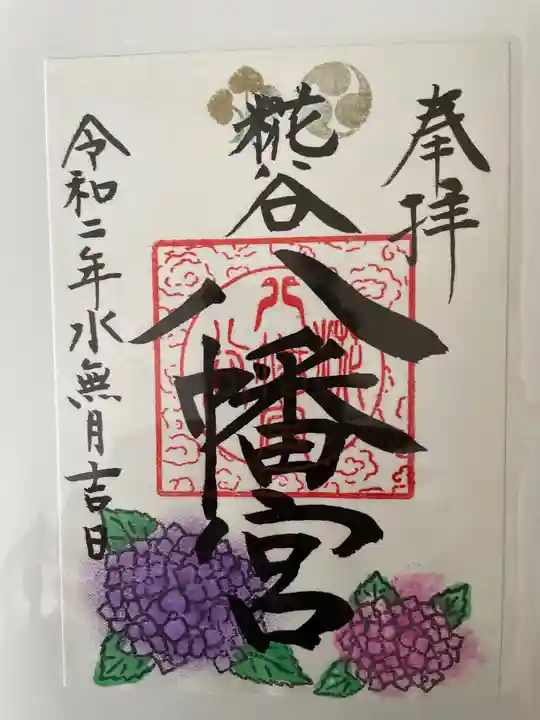 奉拝
糀谷
八幡宮
令和二年水無月吉日